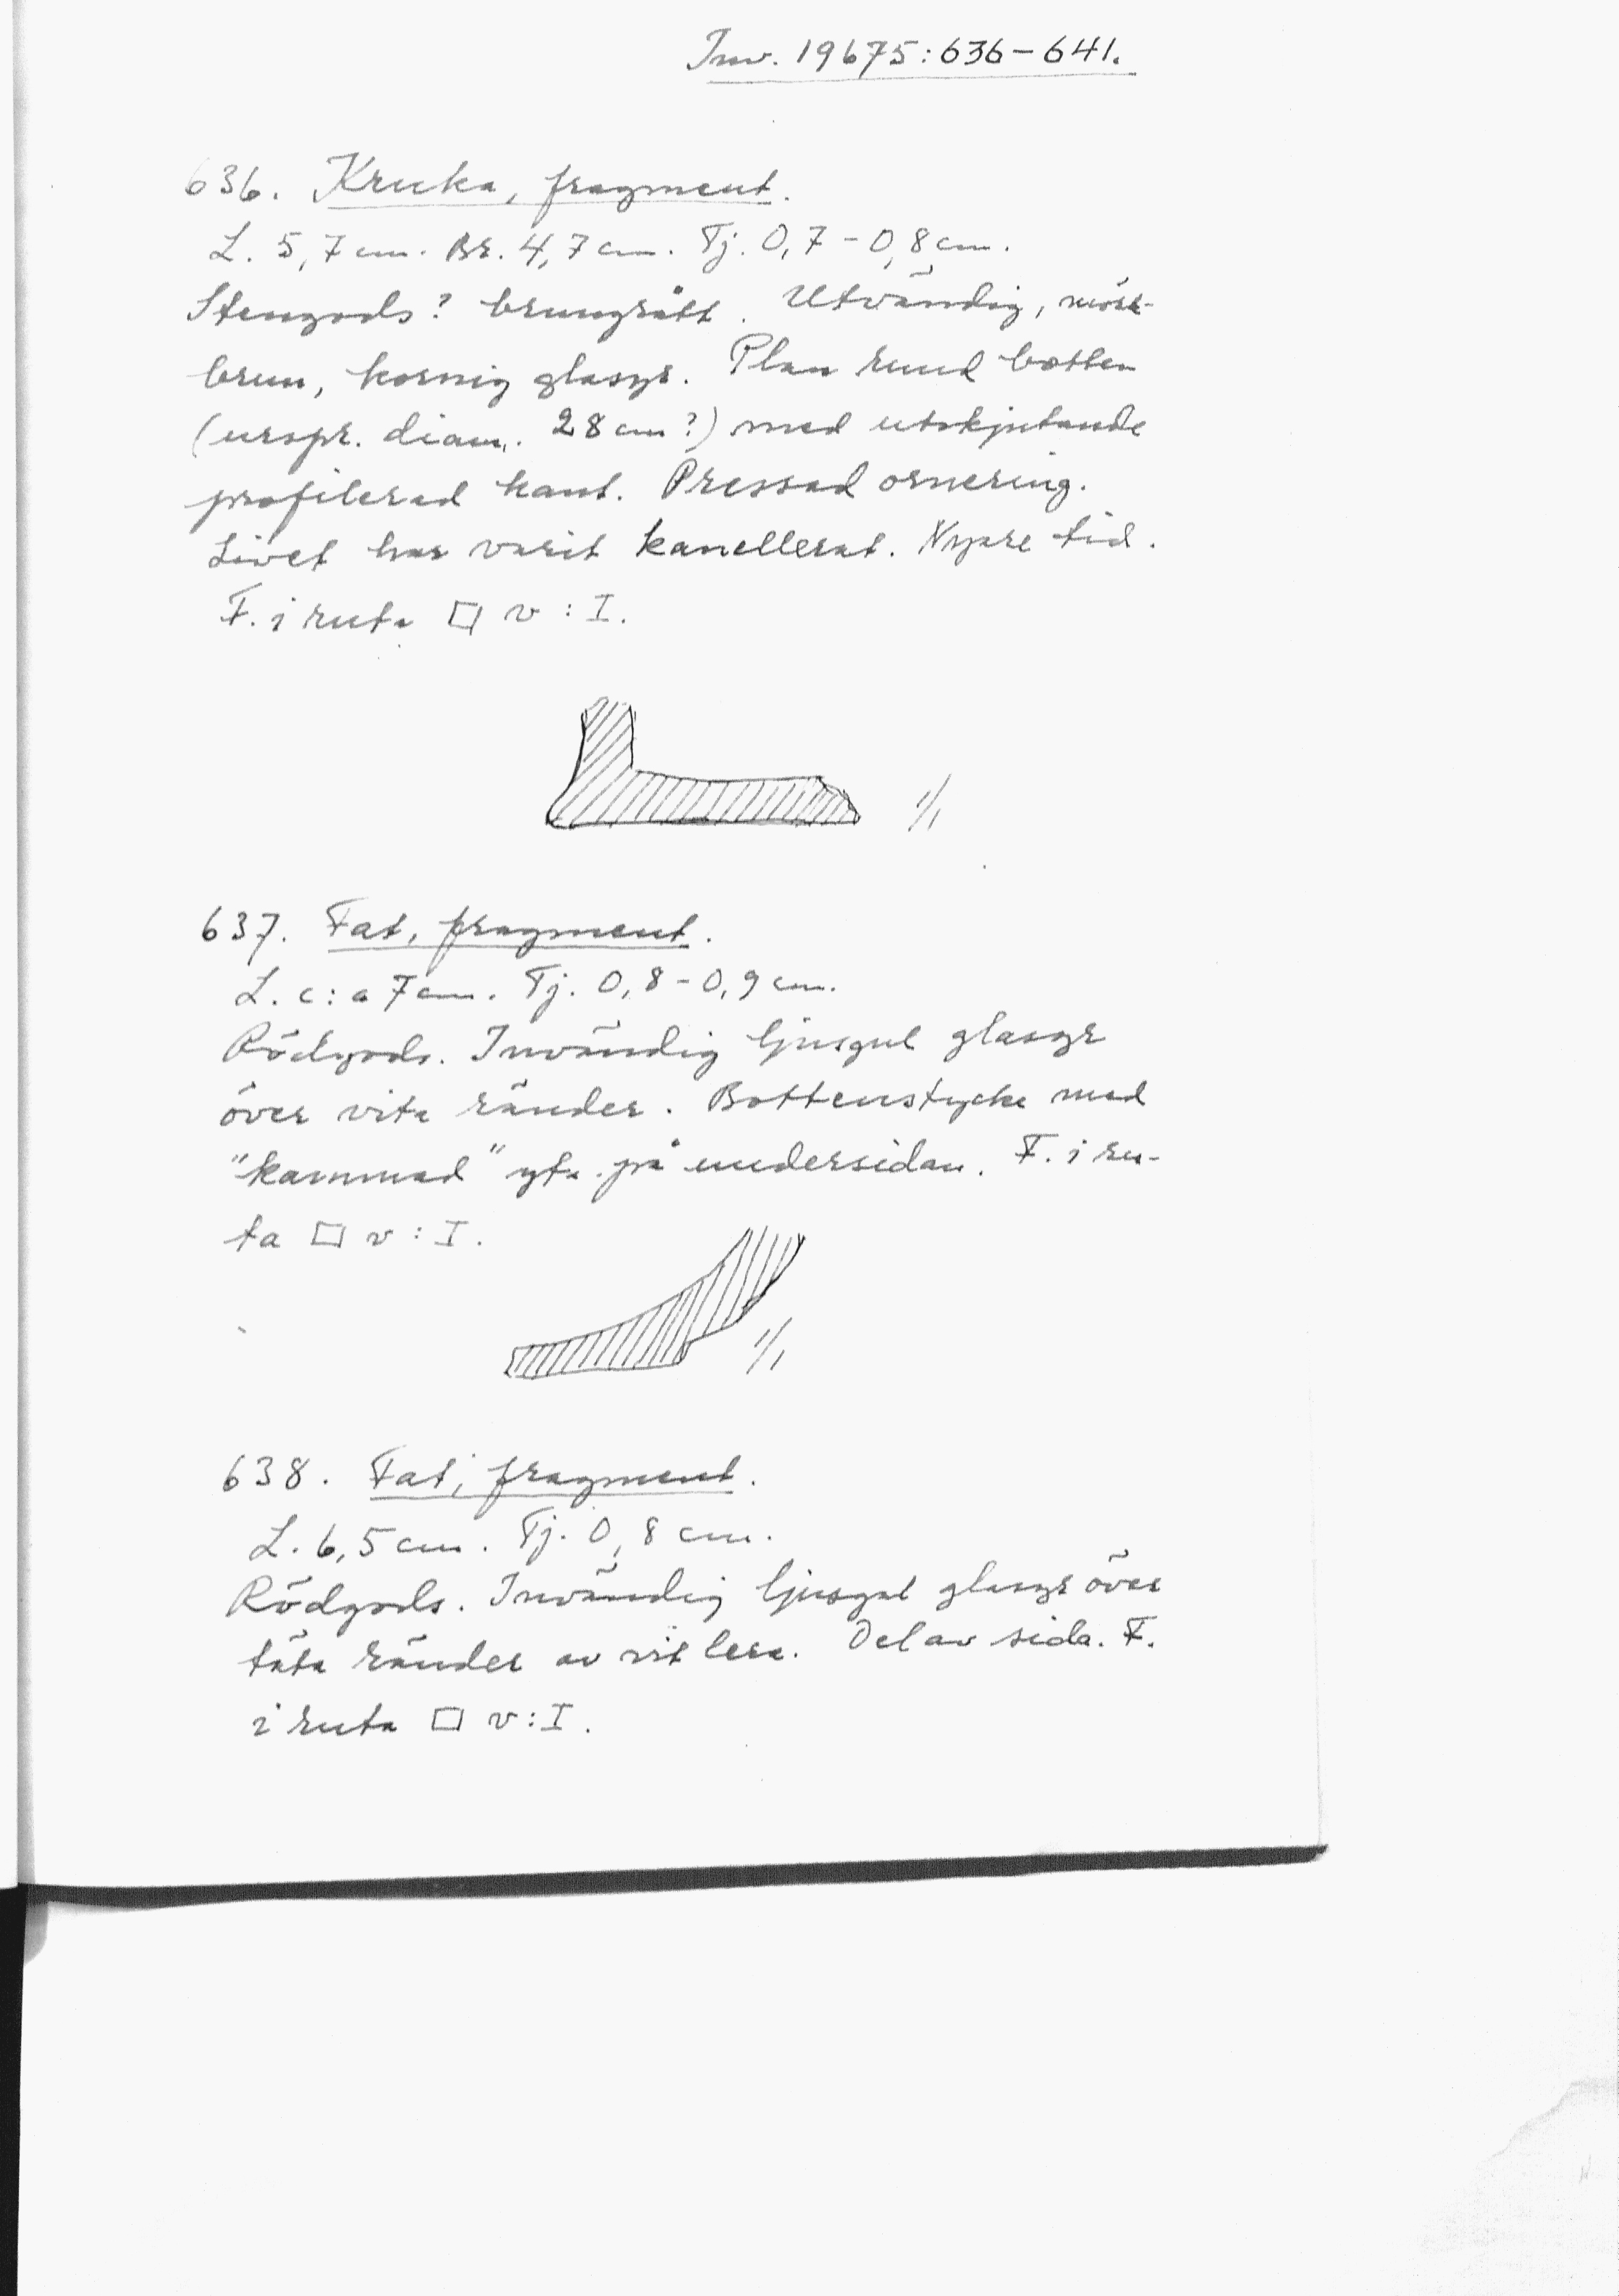 Inv. 19675:636-641.
636. Kruka, fragment.
L. 5,7 cm. Br. 4,7 cm. Tj. 0,7-0,8 cm.
Stengods? brungrått. Utvändig, mörk-
brun, kornig glasyr. Plan rund botten
(urspr. diam. 28 cm?) med utskjutande
profilerad kant. Pressad ornering.
Livet har varit kanellerat. Nyare tid.
F. i ruta □ v:I.
1/1
637. Fat, fragment.
L. c:a 7 cm. Tj. 0,8-0,9 cm.
Rödgods. Invändig ljusgul glasyr
över vita ränder. Bottenstycke med
"kammad" yta på undersidan. F. i ru-
ta □ v:I.
1/1
638. Fat, fragment.
L. 6,5 cm. Tj. 0,8 cm.
Rödgods. Invändig ljusgul glasyr över
täta ränder av vit lera. Del av sida. F.
i ruta □ v:I.